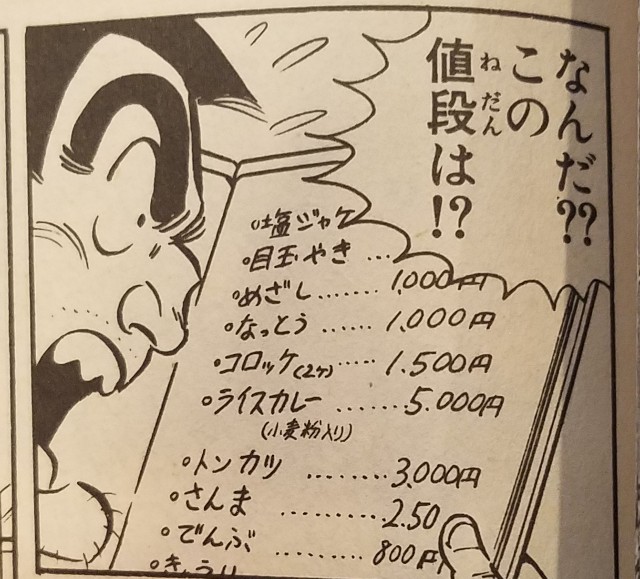 なんだ??
この
値段は!?
ねだん
塩ジャケ
目玉やき…
めざし……1,000円
なっとう……1,000円
コロッケ(2ケ)……1.500円
ライスカレー……5.000円
(小麦粉入り)
トンカツ………3,000円
さんま………2.50
でんぶ………800円
きゅうり